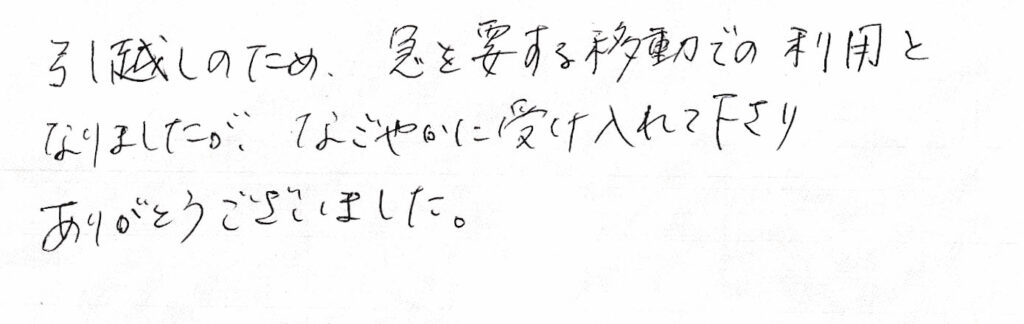 引越しのため、急を要する移動での利用と
なりましたが、なごやかに受け入れて下さり
ありがとうございました。